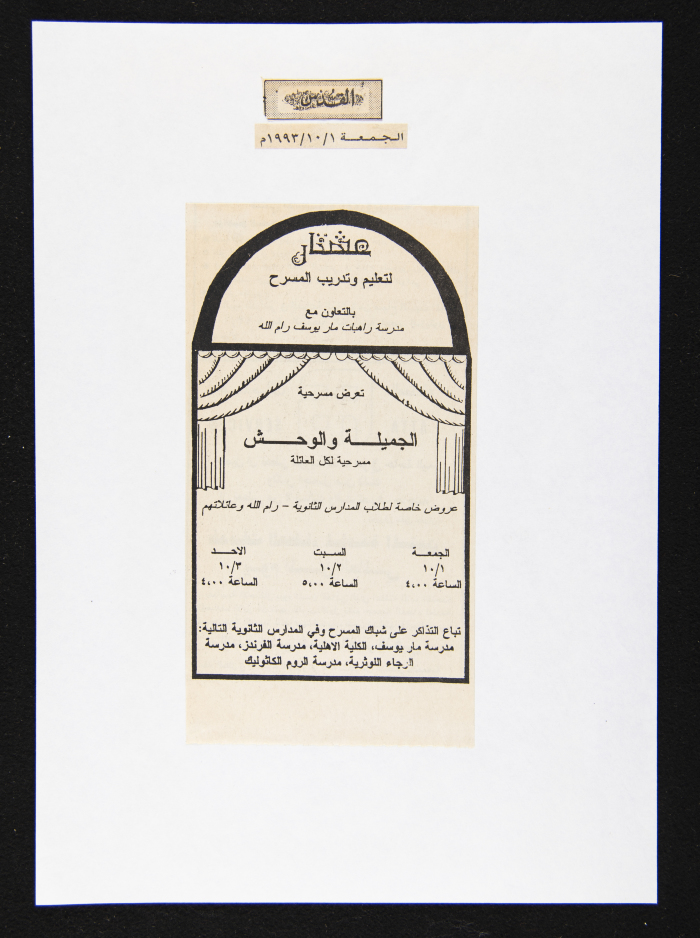 القدس
الجمعة ١٩٩٣/١٠/١م
عشتار
لتعليم وتدريب المسرح
بالتعاون مع
مدرسة راهبات مار يوسف رام الله
تعرض مسرحية
الجميلة والوحش
مسرحية لكل العائلة
عروض خاصة لطلاب المدارس الثانوية – رام الله وعائلاتهم
الجمعة السبت الاحد
١٠/١ ١٠/٢ ١٠/٣
الساعة ٤,٠٠ الساعة ٥,٠٠ الساعة ٤,٠٠
تباع التذاكر على شباك المسرح وفي المدارس الثانوية التالية:
مدرسة مار يوسف، الكلية الاهلية، مدرسة الفرندز، مدرسة
الرجاء اللوثرية، مدرسة الروم الكاثوليك